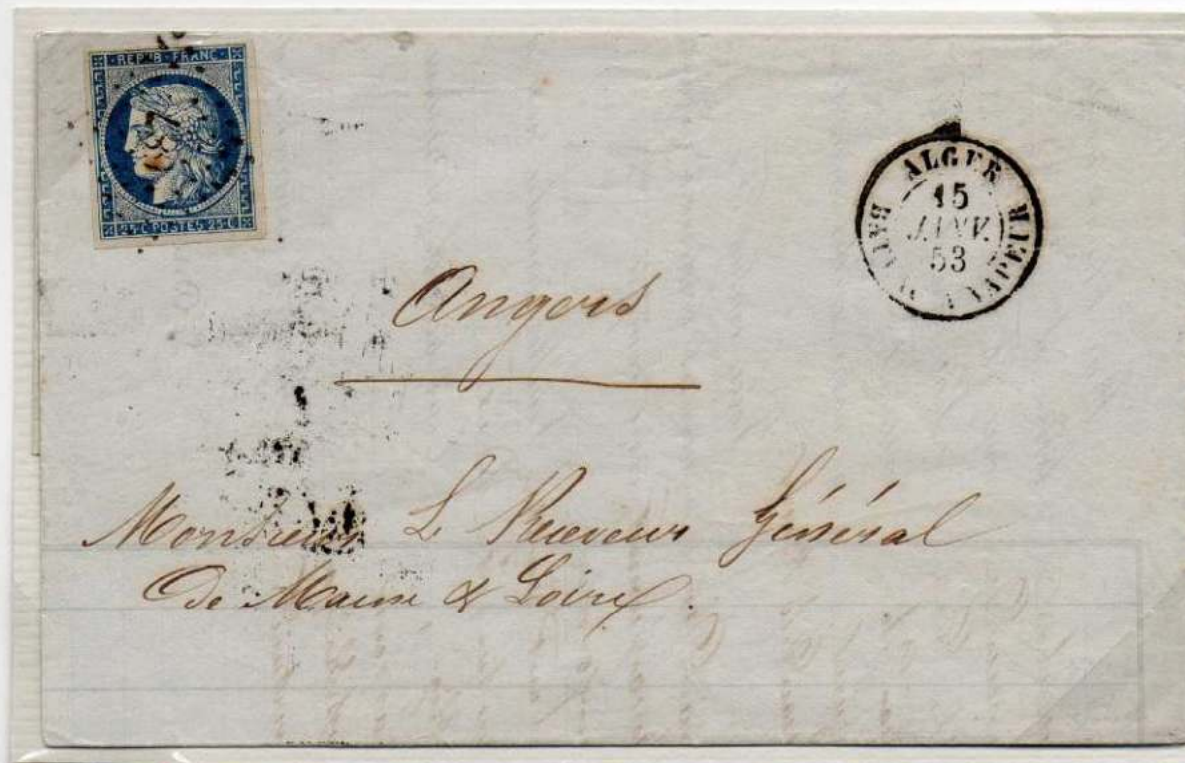 REPUB · FRANC ·
25 · C · POSTES · 25 · C
ALGER
15
JANV.
53
BATEAU À VAPEUR
Angers
Monsieur Le Receveur Général
De Maine & Loire.